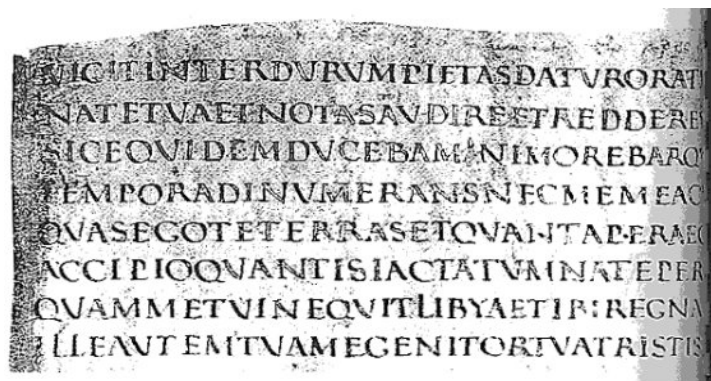 VICITINTERDVRVMPIETASDATVRORAT
NATETVAETNOTASAVDIREETREDDEREV
SICEQVIDEMDVCEBAMANIMOREBARQ
TEMPORADINVMERANSNECMEMEAC
QVASEGOTETERRASETQVANTAPERAEQ
ACCIPIOQVANTISIACTATVMNATEPER
QVAMMETVINEQVITLIBYAETIBIREGNA
ILLEAVTEMTVAMEGENITORTVATRISTIS